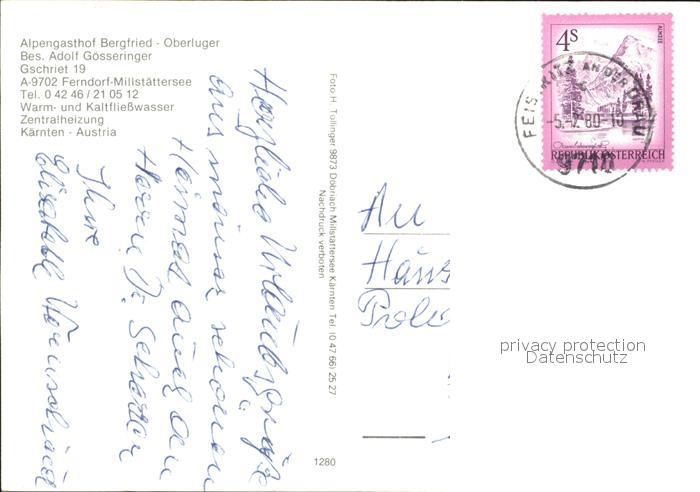 Alpengasthof Bergfried - Oberluger
Bes. Adolf Gösseringer
Gschriet 19
A-9702 Ferndorf-Millstättersee
Tel. 0 42 46 / 21 05 12
Warm- und Kaltfließwasser
Zentralheizung
Kärnten - Austria
Herzliche Urlaubsgrüße
aus meiner schönen
Heimat auch an
Herrn Dr.
Ihre
Elisabeth
Foto H. Tollinger 9873 Döbriach Millstättersee Kärnten Tel. (0 47 66) 25 27
Nachdruck verboten
1280
4S
ALMSEE
REPUBLIK ÖSTERREICH
FEISTRITZ AN DER DRAU
-5.-7.80-10
9710
An
Haus
privacy protection
Datenschutz